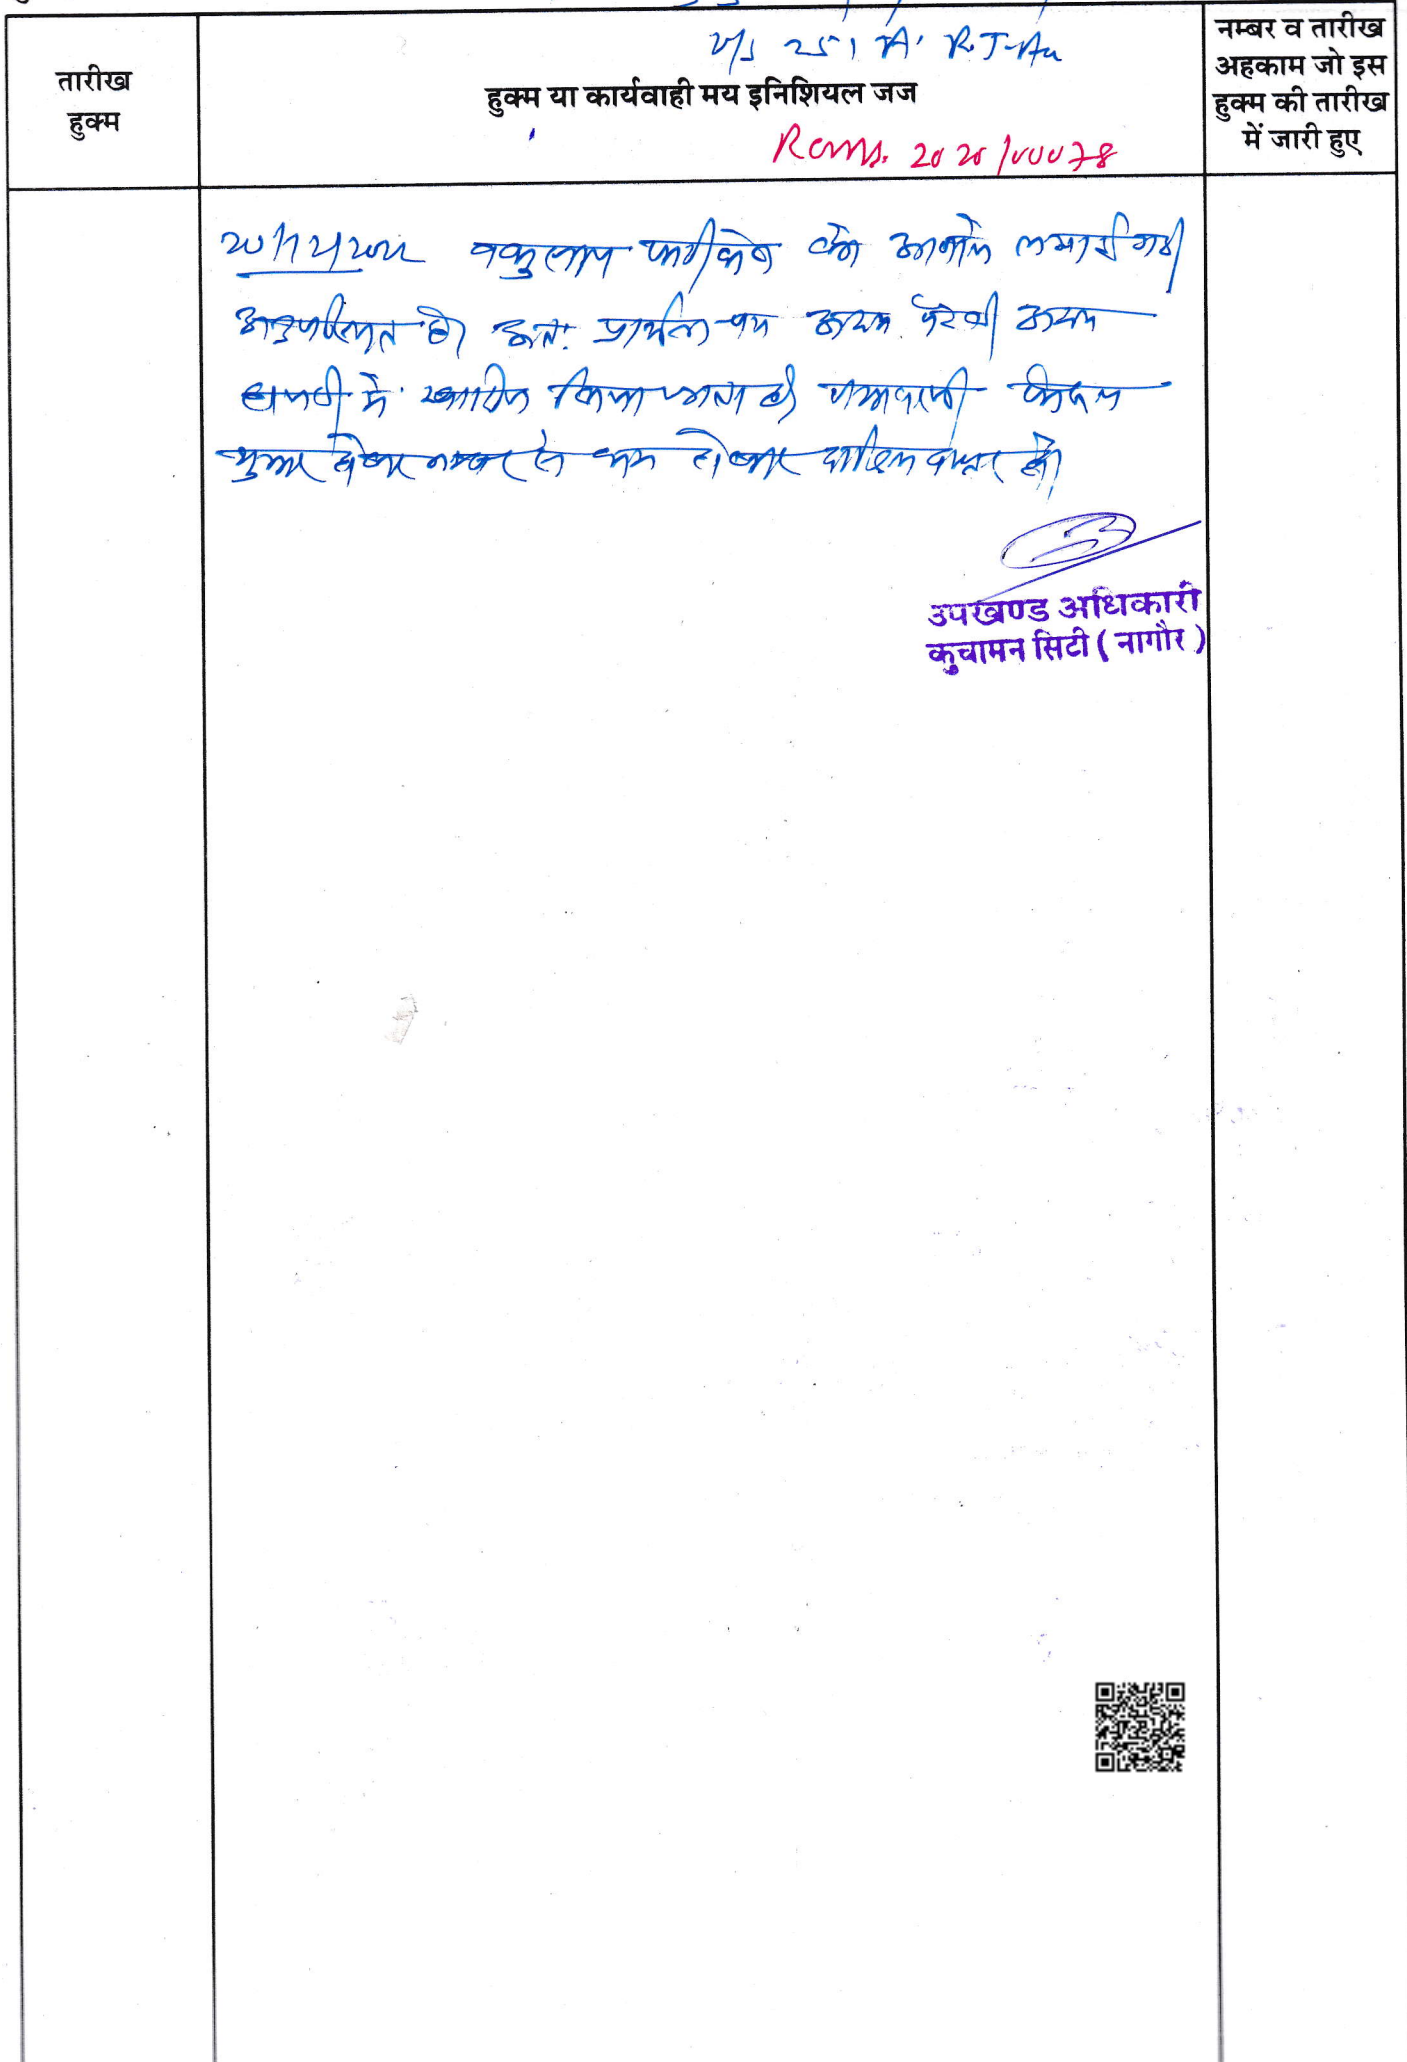 u/s 251 A' R.T. Act
तारीख
हुक्म
हुक्म या कार्यवाही मय इनिशियल जज
नम्बर व तारीख
अहकाम जो इस
हुक्म की तारीख
में जारी हुए
Rcms. 2020/00078
वकुलाय फरीकेन को आवाजे लगाई गई
अनुपस्थित है। अतः प्रार्थना पत्र अदम पैरवी अदम
हाजरी में खारिज किया जाता है। पत्रावली फैसल
शुमार होकर नम्बर से कम होकर दाखिल दफ्तर हो।
उपखण्ड अधिकारी
कुचामन सिटी ( नागौर )